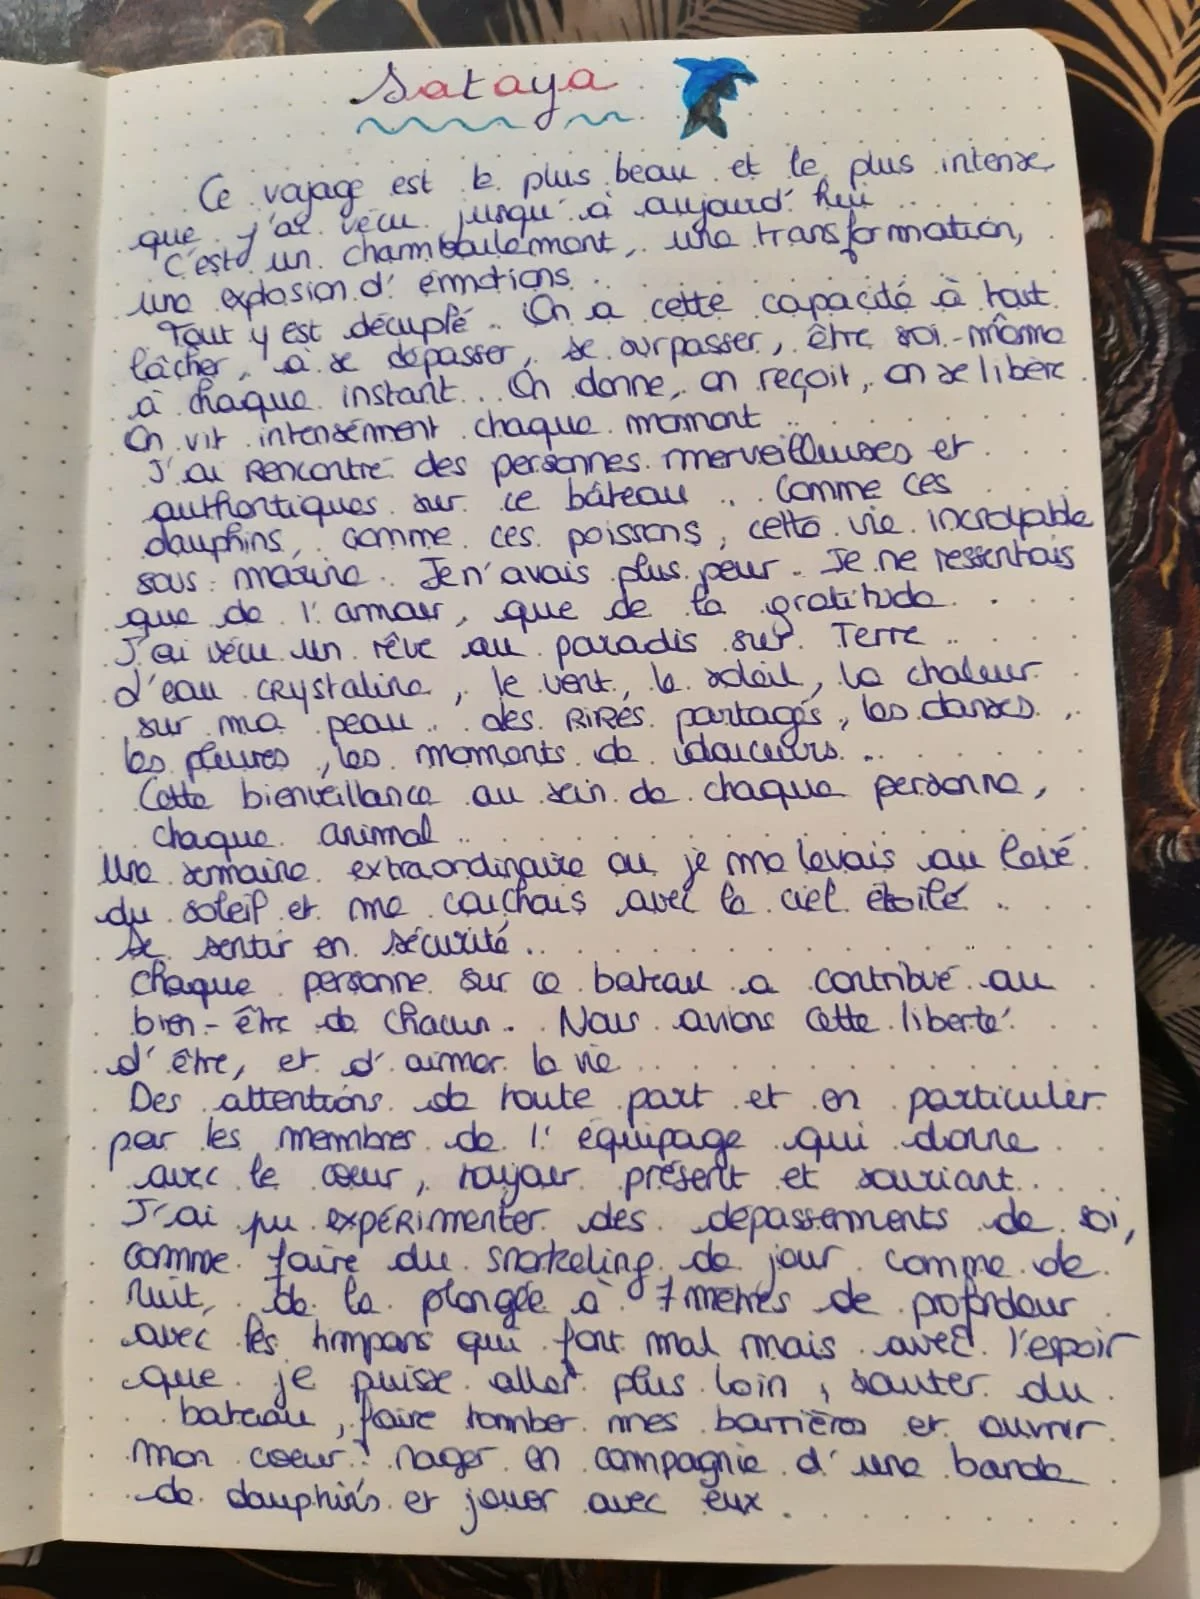 Sataya
Ce voyage est le plus beau et le plus intense
que j'ai vécu jusqu'à aujourd'hui ..
C'est un chamboulement, une transformation,
une explosion d'émotions ..
Tout y est décuplé .. On a cette capacité à tout
lâcher, à se dépasser, se surpasser, être soi-même
à chaque instant... On donne, on reçoit, on se libère.
On vit intensément chaque moment ..
J'ai Rencontré des personnes merveilleuses et
authentiques sur ce bâteau .. Comme ces
dauphins, comme ces poissons, cette vie incroyable
sous marine. Je n'avais plus peur. Je ne ressentais
que de l'amour, que de la gratitude.
J'ai vécu un rêve au paradis sur Terre ..
d'eau crystaline, le vent, le soleil, la chaleur
sur ma peau .. des RiREs partagés, les danses,
les pleures, les moments de douceurs...
Cette bienveillance au sein de chaque personne,
chaque animal ..
Une semaine extraordinaire ou je me levais au levé
du soleil et me couchais avec le ciel étoilé ..
Se sentir en sécurité ..
Chaque personne sur ce bateau a contribué au
bien-être de chacun. Nous avions cette liberté
d'être, et d'aimer la vie ...
Des attentions de toute part et en particulier
par les membres de l'équipage qui donne
avec le cœur, toujour présent et souriant...
J'ai pu expérimenter des dépassements de soi,
comme faire du snorkeling de jour comme de
nuit, de la plongée à 7 mètres de profondeur
avec les tympans qui font mal mais avec l'espoir
que je puisse aller plus loin, sauter du
bateau, faire tomber mes barrières et ouvrir
mon coeur. nager en compagnie d'une bande
de dauphins et jouer avec eux.